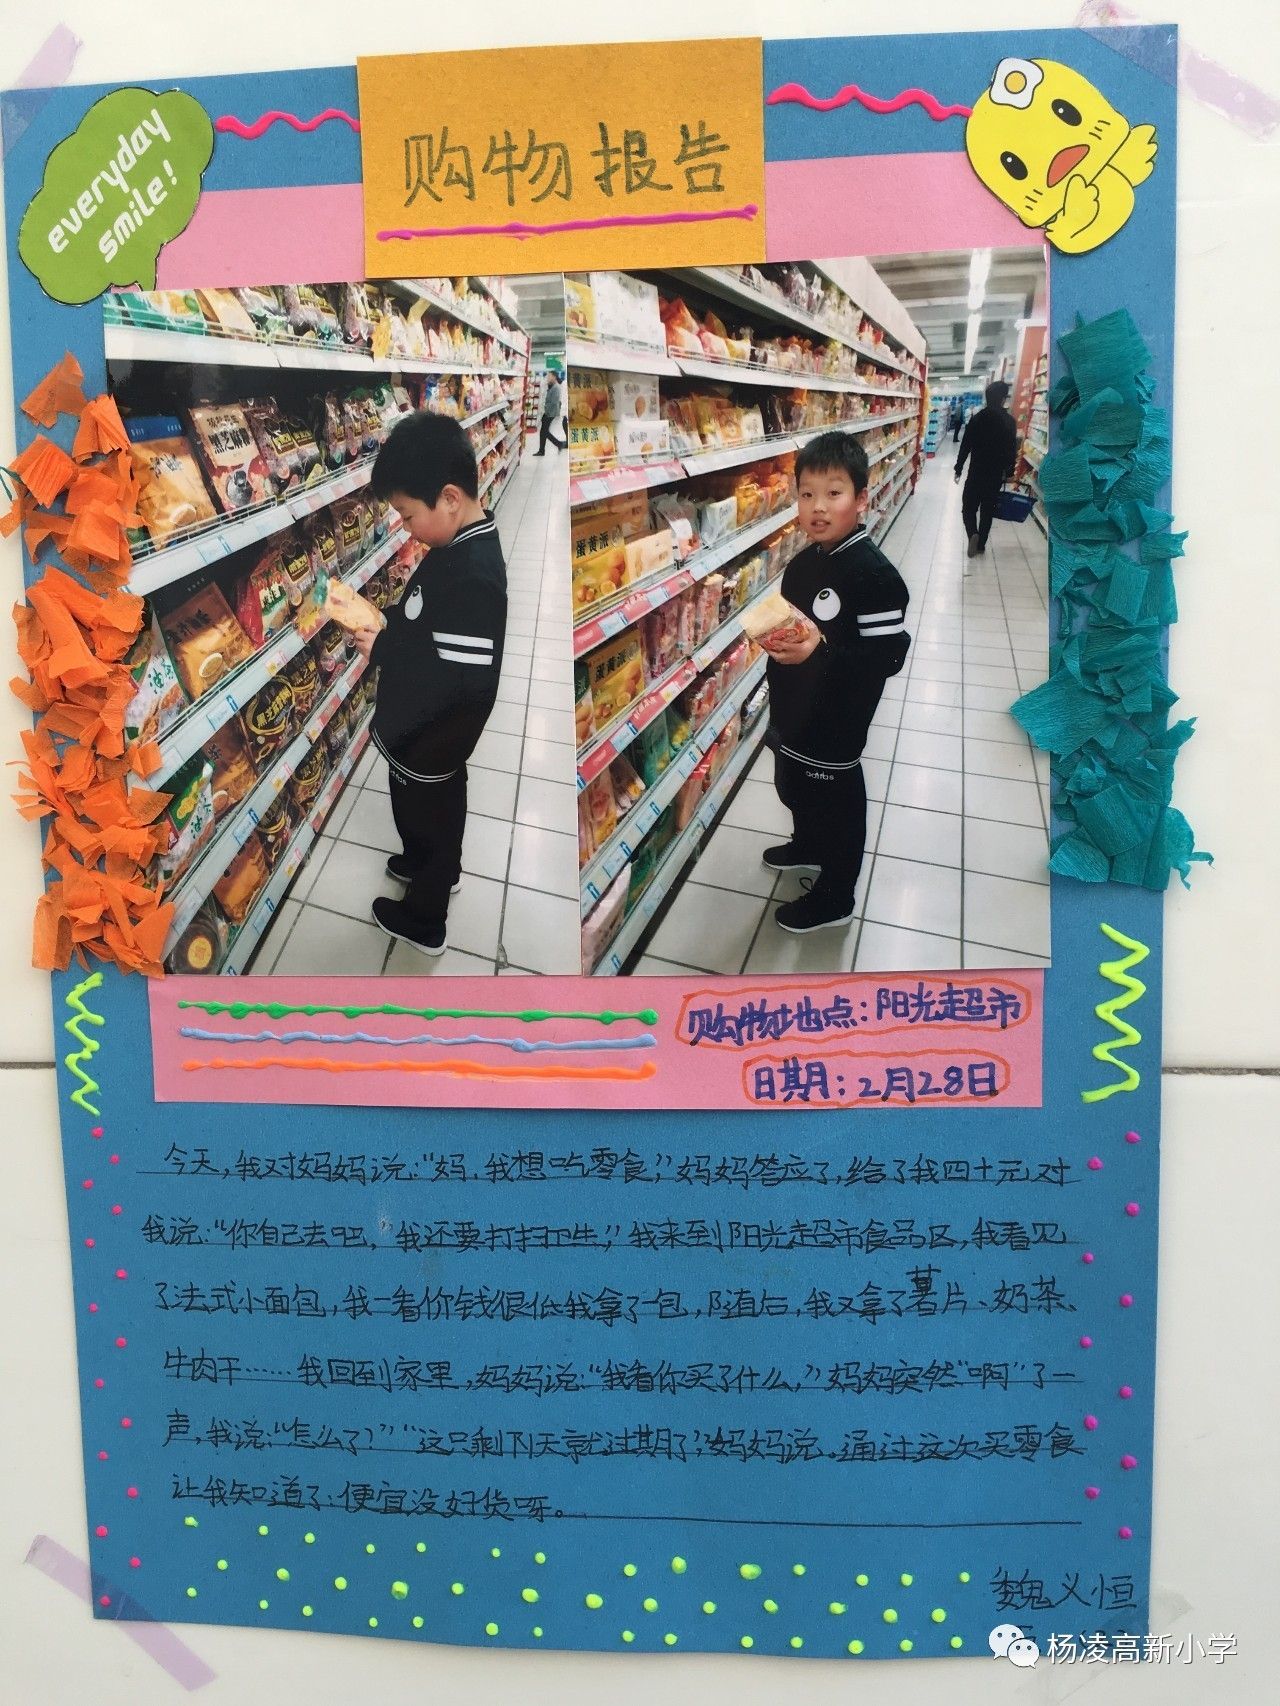 everyday
smile!
购物报告
购物地点:阳光超市
日期:2月28日
今天,我对妈妈说:“妈,我想吃零食,”妈妈答应了,给了我四十元对
我说:“你自己去吧,”我还要打扫卫生,”我来到阳光超市食品区,我看见
了法式小面包,我一看价钱很低我拿了一包,随后,我又拿了薯片、奶茶、
牛肉干……我回到家里,妈妈说:“我看你买了什么,”妈妈突然“啊”了一
声,我说:“怎么了?”“这只剩下1天就过期了”,妈妈说。通过这次买零食
让我知道了:便宜没好货呀。
魏义恒
杨凌高新小学
蛋黄派
蛋黄派
蛋黄派
adidas
adidas